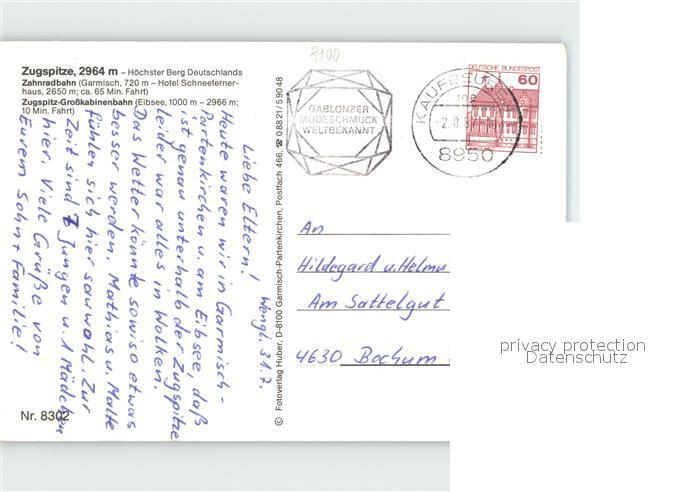 8100
Zugspitze, 2964 m – Höchster Berg Deutschlands
Zahnradbahn (Garmisch, 720 m – Hotel Schneeferner-
haus, 2650 m; ca. 65 Min. Fahrt)
Zugspitz-Großkabinenbahn (Eibsee, 1000 m – 2966 m;
10 Min. Fahrt)
Wengl. 31.7.
Liebe Eltern!
Heute waren wir in Garmisch-
Partenkirchen u. am Eibsee, daß
ist genau unterhalb der Zugspitze
leider war alles in Wolken.
Das Wetter könnte sowiso etwas
besser werden. Mathias u. Malte
fühlen sich hier sauwohl. Zur
Zeit sind 7 Jungen u. 1 Mädchen
hier. Viele Grüße von
Eurem Sohn + Familie!
Nr. 8302
© Fotoverlag Huber, D-8100 Garmisch-Partenkirchen, Postfach 466, ☎ 08821/59048
GABLONZER
MODESCHMUCK
WELTBEKANNT
KAUFBEUREN
-2.8.
8950
DEUTSCHE BUNDESPOST
60
An
Hildegard u. Helmu
Am Sattelgut
4630 Bochum
privacy protection
Datenschutz